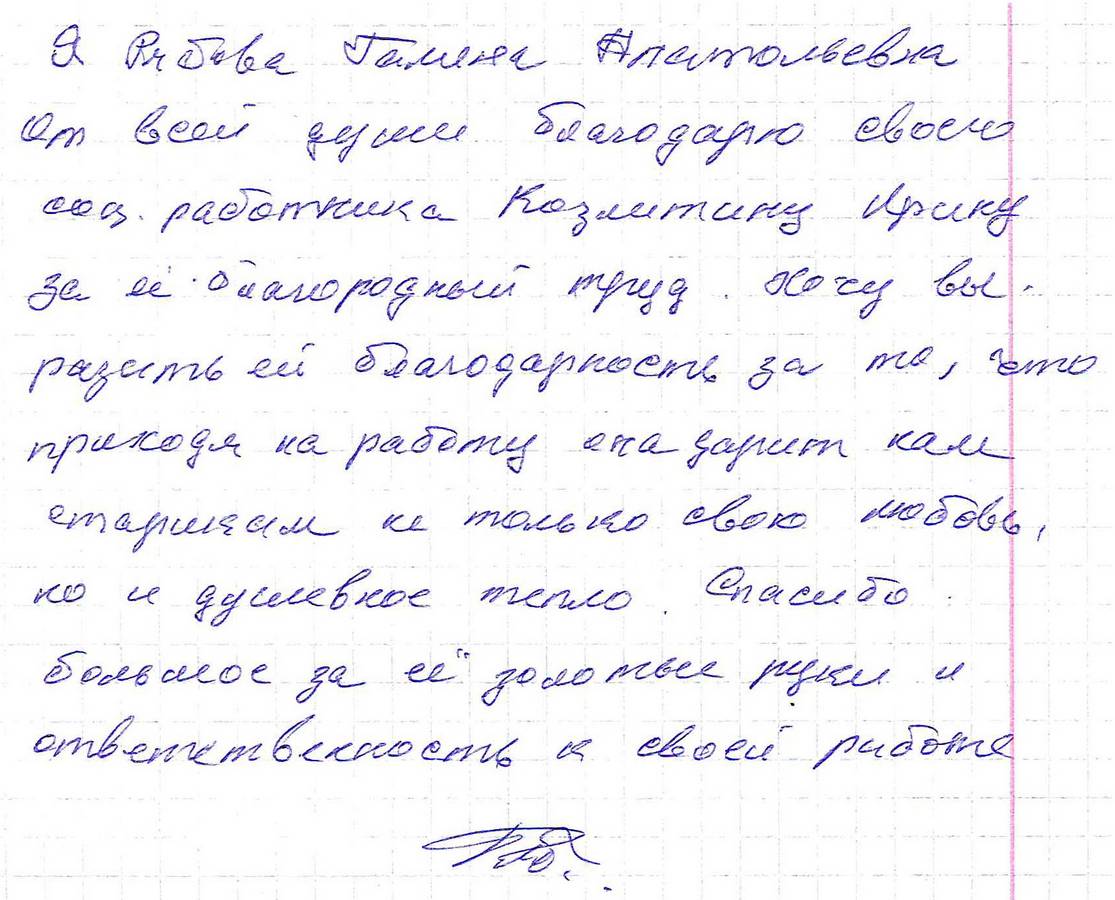 Я Рябова Галина Анатольевна
От всей души благодарю своего
соц. работника Козлитину Ирину
за её благородный труд. Хочу вы-
разить ей благодарность за то, что
приходя на работу она дарит нам
старикам не только свою любовь,
но и душевное тепло. Спасибо
большое за её золотые руки и
ответственность к своей работе